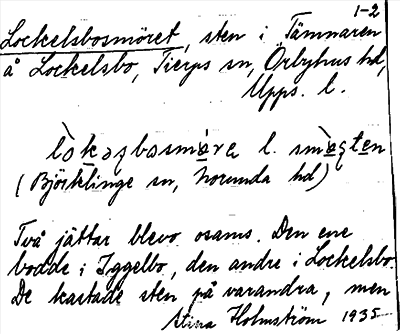 1-2
Lockelsbosmöret, sten i Tämnaren
å Lockelsbo, Tierps sn, Örbyhus hd,
Upps. l.
l. 
(Björklinge sn, Norunda hd)
Två jättar blevo osams. Den ene
bodde i Iggelbo, den andre i Lockelsbo.
De kastade sten på varandra, men
Stina Holmström 1935